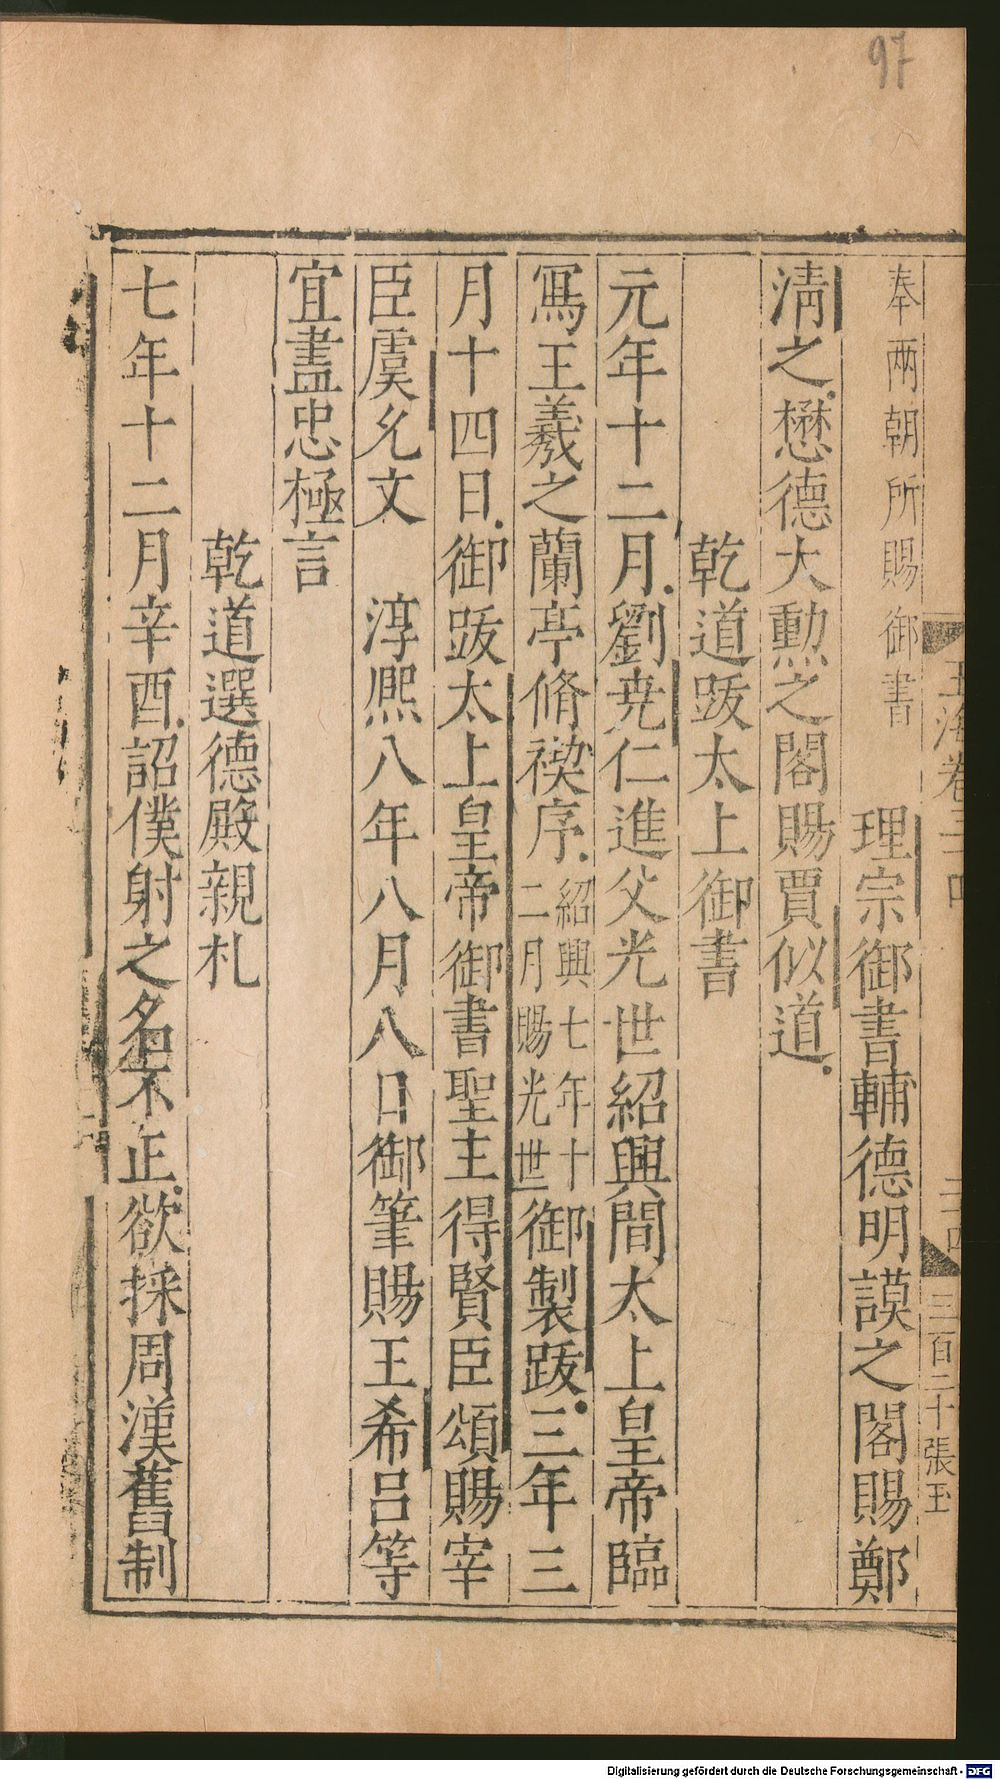 97
玉海卷三四
二十四
三百二十張玉
奉兩朝所賜御書　理宗御書輔德明謨之閣賜鄭
淸之懋德大勲之閣賜賈似道
乾道跋太上御書
元年十二月劉尭仁進父光世紹興間太上皇帝臨
冩王羲之蘭亭脩禊序紹興七年十二月賜光世御製跋三年三
月十四日御跋太上皇帝御書聖主得賢臣頌賜宰
臣虞允文　淳熈八年八月八日御筆賜王希呂等
宜盡忠極言
乾道選德殿親札
七年十二月辛酉詔僕射之名不正欲採周漢舊制
Digitalisierung gefördert durch die Deutsche Forschungsgemeinschaft - DFG